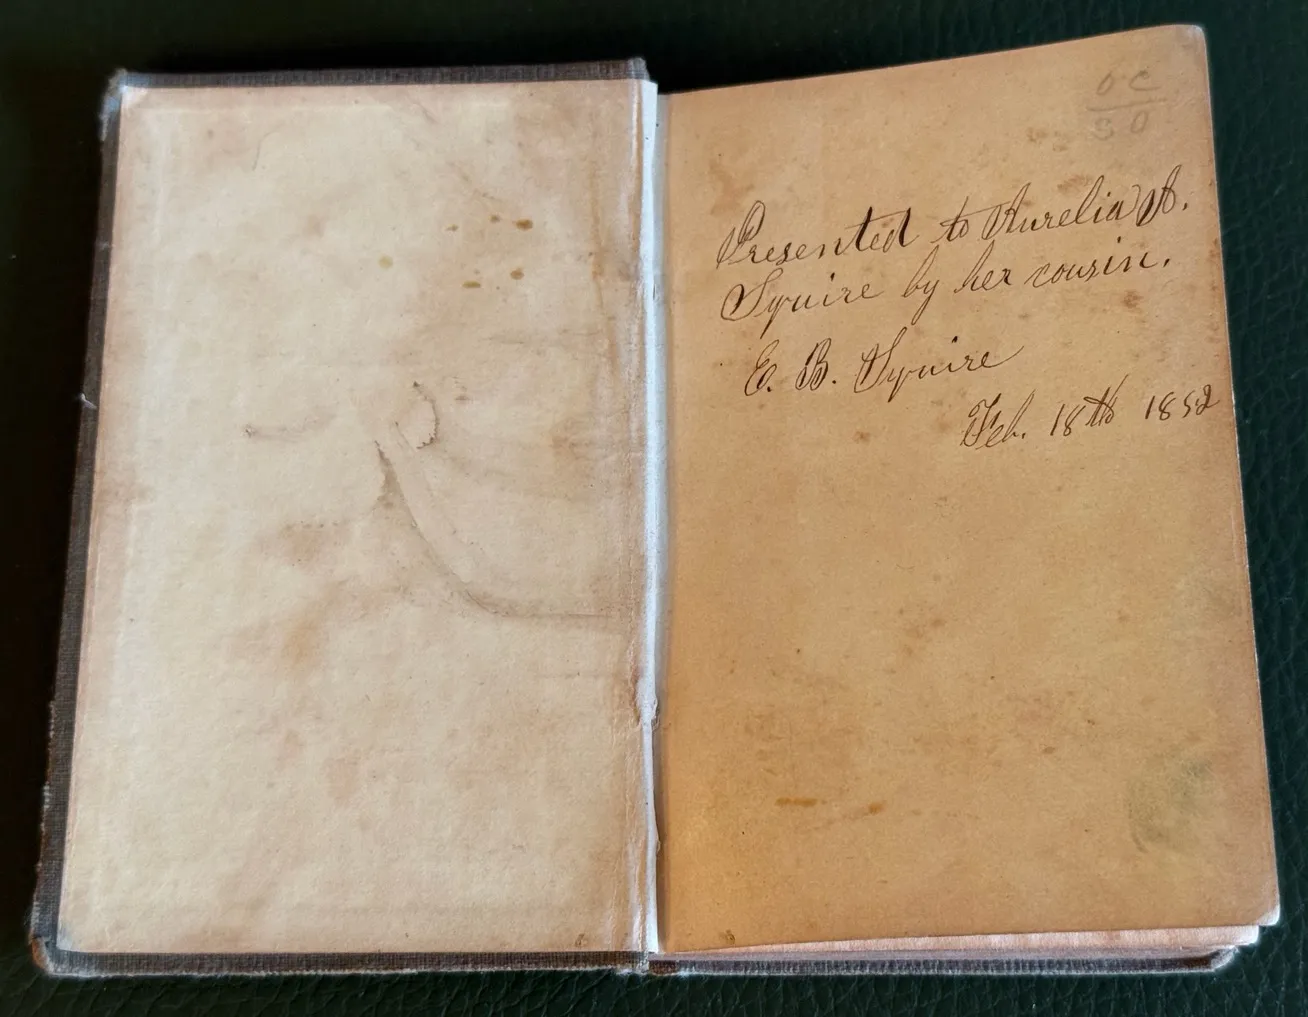 o c
s o
Presented to Aurelia A.
Squire by her cousin.
E. B. Squire
Feb. 18th 1852